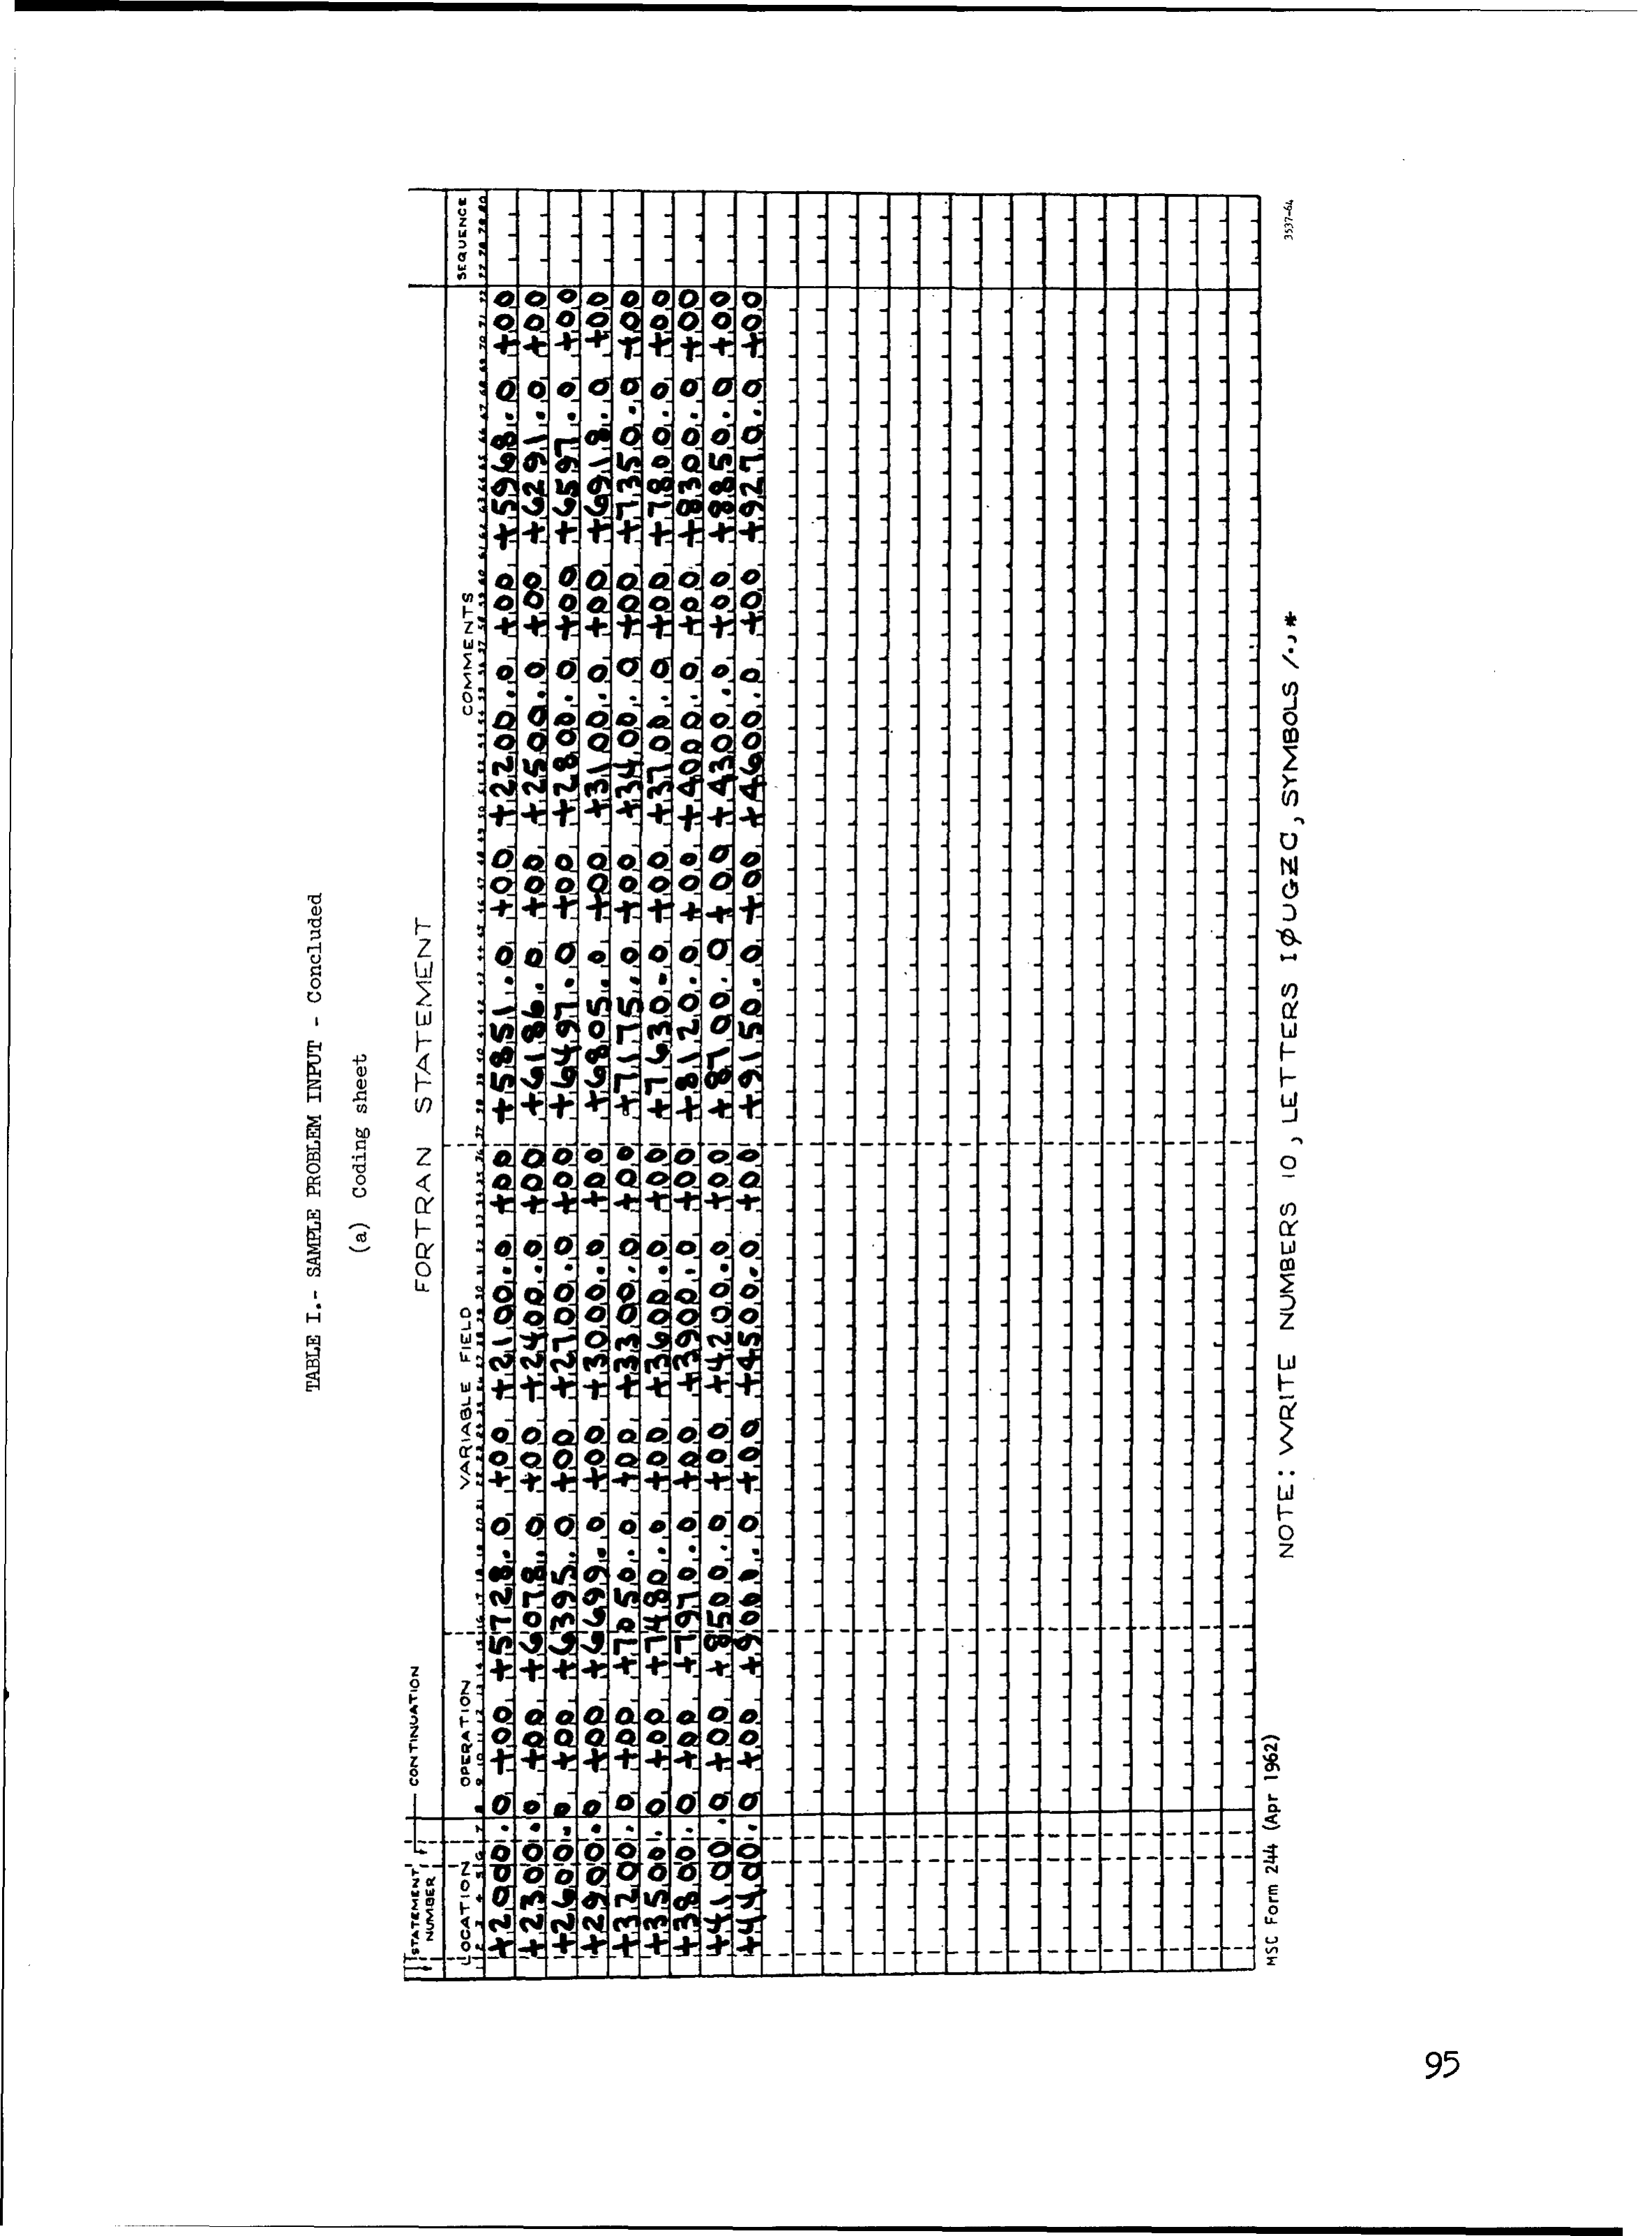 TABLE I.- SAMPLE PROBLEM INPUT - Concluded
(a) Coding sheet
STATEMENT NUMBER CONTINUATION FORTRAN STATEMENT
LOCATION OPERATION VARIABLE FIELD COMMENTS SEQUENCE
+2000.0 +00 +5728.0 +00 +2100.0 +00 +5851.0 +00 +2200.0 +00 +5968.0 +00
+2300.0 +00 +6078.0 +00 +2400.0 +00 +6186.0 +00 +2500.0 +00 +6291.0 +00
+2600.0 +00 +6395.0 +00 +2700.0 +00 +6497.0 +00 +2800.0 +00 +6597.0 +00
+2900.0 +00 +6699.0 +00 +3000.0 +00 +6805.0 +00 +3100.0 +00 +6918.0 +00
+3200.0 +00 +7050.0 +00 +3300.0 +00 +7175.0 +00 +3400.0 +00 +7350.0 +00
+3500.0 +00 +7480.0 +00 +3600.0 +00 +7630.0 +00 +3700.0 +00 +7800.0 +00
+3800.0 +00 +7970.0 +00 +3900.0 +00 +8120.0 +00 +4000.0 +00 +8300.0 +00
+4100.0 +00 +8500.0 +00 +4200.0 +00 +8700.0 +00 +4300.0 +00 +8850.0 +00
+4400.0 +00 +9000.0 +00 +4500.0 +00 +9150.0 +00 +4600.0 +00 +9270.0 +00
MSC Form 244 (Apr 1962) NOTE: WRITE NUMBERS 10, LETTERS IØUGZC, SYMBOLS /.,* 3537-64
95